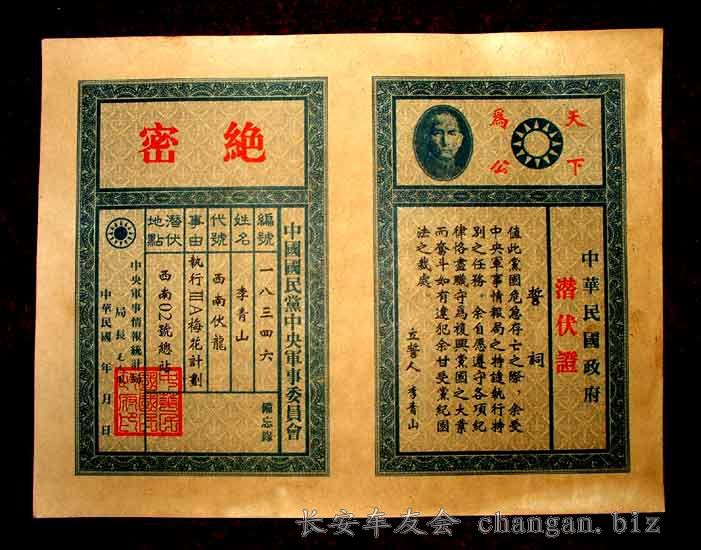 天下
爲公
中華民國政府
潛伏證
誓祠
值此黨國危急存亡之際，余受
中央軍事情報局之特諉執行特
別之任務。余自愿遵守各項紀
律恪盡職守爲復興黨國之大業
而奮斗如有違犯余甘受黨紀國
法之裁處。
立誓人 李青山
絕密
中國國民黨中央軍事委員會
備忘錄
編號 一八三四六
姓名 李青山
代號 西南伏龍
事由 執行IIIA梅花計劃
潛伏地點 西南02號總站
中央軍事情報統計局
局長
中華民國 年 月 日
长安车友会 changan.biz